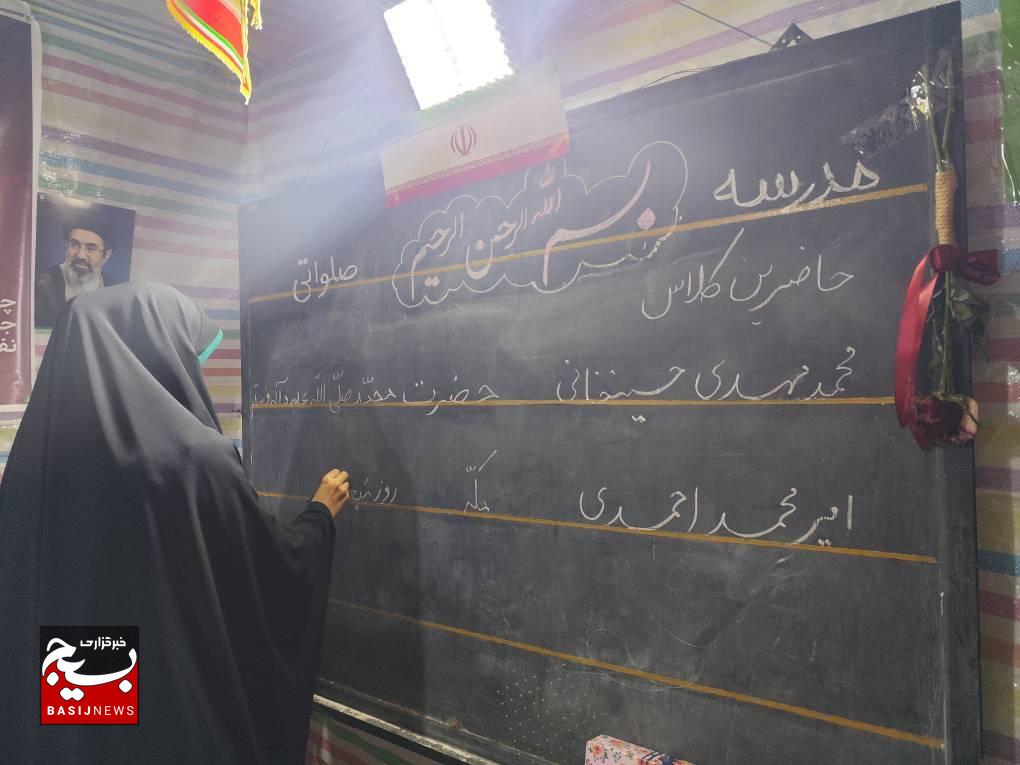 مدرسه
بسم الله الرحمن الرحیم
صلواتی
حاضرین کلاس
محمدمهدی حسینخانی
حضرت محمّد صلّی اللّه علیه و آله و سلّم
امیرمحمد احمدی
مکّه
روز
خبرگزاری
بسیج
BASIJNEWS